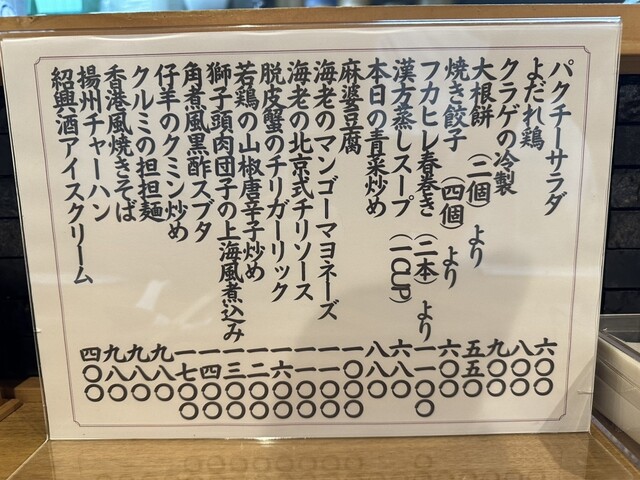 パクチーサラダ 六〇〇
よだれ鶏 八〇〇
クラゲの冷製 九〇〇
大根餅(二個)より 五五〇
焼き餃子(四個)より 六〇〇
フカヒレ春巻き(二本)より 一一〇〇
漢方蒸しスープ(一CUP) 六八〇
本日の青菜炒め 八八〇
麻婆豆腐 一〇〇〇
海老のマンゴーマヨネーズ 一一〇〇
海老の北京式チリソース 一一〇〇
脱皮蟹のチリガーリック 一六〇〇
若鶏の山椒唐辛子炒め 一二〇〇
獅子頭肉団子の上海風煮込み 一三〇〇
角煮風黒酢スブタ 一四〇〇
仔羊のクミン炒め 一七〇〇
クルミの担担麺 九八〇
香港風焼きそば 九八〇
揚州チャーハン 九八〇
紹興酒アイスクリーム 四〇〇